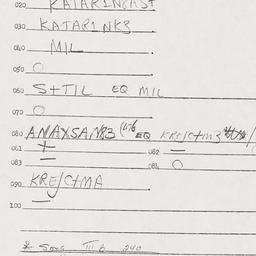 020 KATAR1N8AST
030 KATAR1NK3
040 MIL
050 O
060 S+TIL EQ MIL
070 O
080 ANAXSAN83 EQ KREJCTM3
081 + 082 —
083 — 084 O
090 KREJCTMA
100 —
* Song III B 240